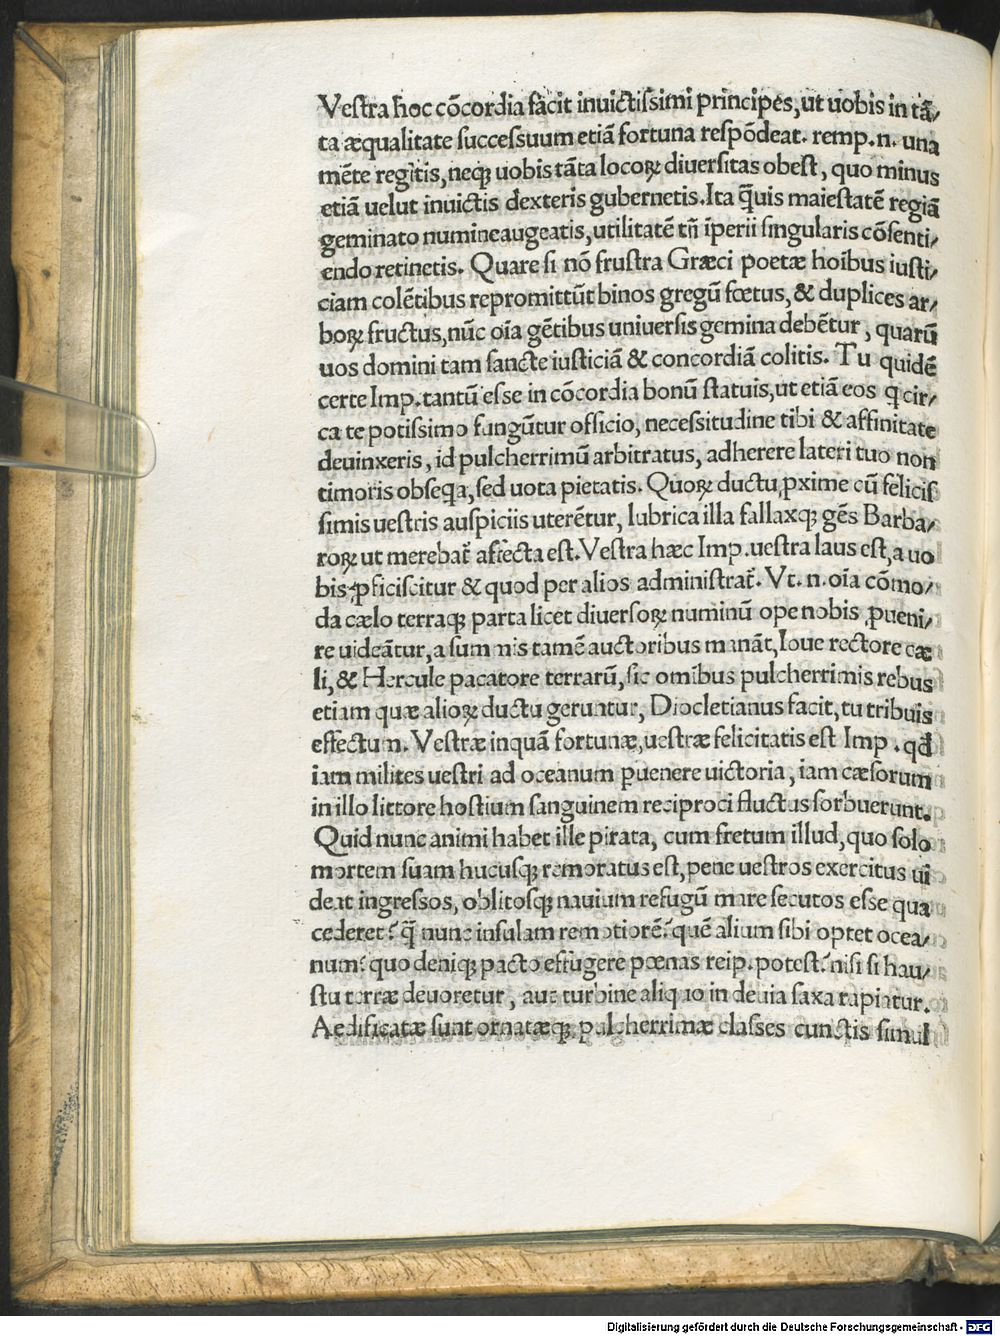 Veſtra hoc cōcordia facit inuictiſsimi principes, ut uobis in tā/
ta æqualitate ſucceſsuum etiā fortuna reſpōdeat. remp. n. una
mēte regitis, neqꝫ uobis tāta locoꝝ diuerſitas obeſt, quo minus
etiā uelut inuictis dexteris gubernetis. Ita q̄uis maieſtatē regiā
geminato numine augeatis, utilitatē tñ īperii ſingularis cōſenti/
endo retinetis. Quare ſi nō fruſtra Græci poetæ hoībus iuſti/
ciam colētibus repromittūt binos gregū fœtus, & duplices ar/
boꝝ fructus, nūc oīa gētibus uniuerſis gemina debētur, quarū
uos domini tam ſancte iuſticiā & concordiā colitis. Tu quidē
certe Imp. tantū eſse in cōcordia bonū ſtatuis, ut etiā eos q cir/
ca te potiſsimo funguūtur officio, neceſsitudine tibi & affinitate
deuinxeris, id pulcherrimū arbitratus, adherere lateri tuo non
timoris obſeq̇a, ſed uota pietatis. Quoꝝ ductu ꝓxime cū feliciſ
ſimis ueſtris auſpiciis uterētur, lubrica illa fallaxqꝫ gēs Barba/
roꝝ ut merebat̄ affecta eſt. Veſtra hæc Imp. ueſtra laus eſt, a uo
bis ꝓficiſcitur & quod per alios adminiſtrat̄. Vt. n. oīa cōmo/
da cælo terraqꝫ parta licet diuerſoꝝ numinū ope nobis ꝓueni/
re uideātur, a summis tamē auctoribus manāt, Ioue rectore cæ
li, & Hercule pacatore terrarū, ſic omībus pulcherrimis rebus
etiam quæ alioꝝ ductu geruntur, Diocletianus facit, tu tribuis
effectum. Veſtræ inquā fortunæ, ueſtræ felicitatis eſt Imp. qđ
iam milites ueſtri ad oceanum ꝑuenere uictoria, iam cæſorum
in illo littore hoſtium ſanguinem reciproci fluctus ſorbuerunt.
Quid nunc animi habet ille pirata, cum fretum illud, quo ſolo
mortem ſuam hucuſqꝫ remoratus eſt, pene ueſtros exercitus ui
deat ingreſsos, oblitoſqꝫ nauium refugū mare ſecutos eſse qua
cederet? q̄ nunc inſulam remotiorē? quē alium ſibi optet ocea/
num? quo deniqꝫ pacto effugere pœnas reip. poteſt? niſi ſi hau/
ſtu terræ deuoretur, aut turbine aliquo in deuia ſaxa rapiatur.
Aedificatæ ſunt ornatæqꝫ pulcherrimæ claſſes cunctis ſimul
Digitalisierung gefördert durch die Deutsche Forschungsgemeinschaft - DFG